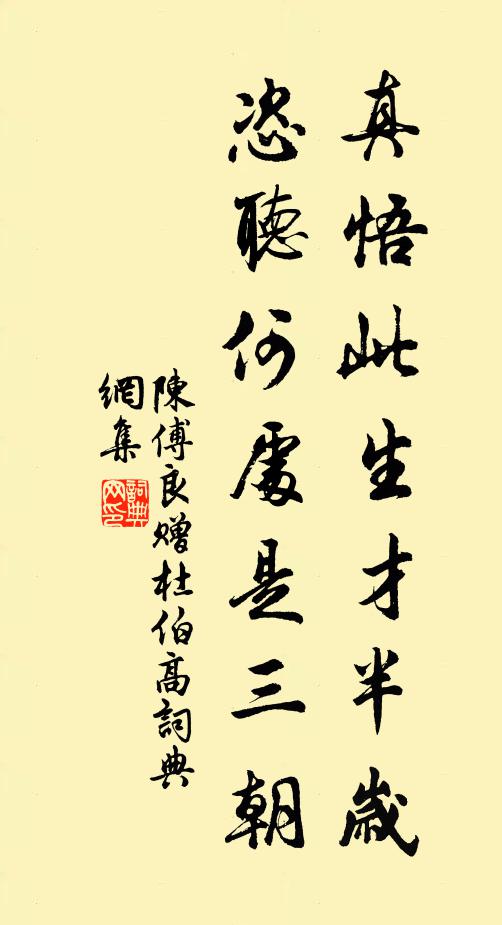 真悟此生才半歲
恣聽何處是三朝
陳傅良贈杜伯高詞典
網集
詞典
网印